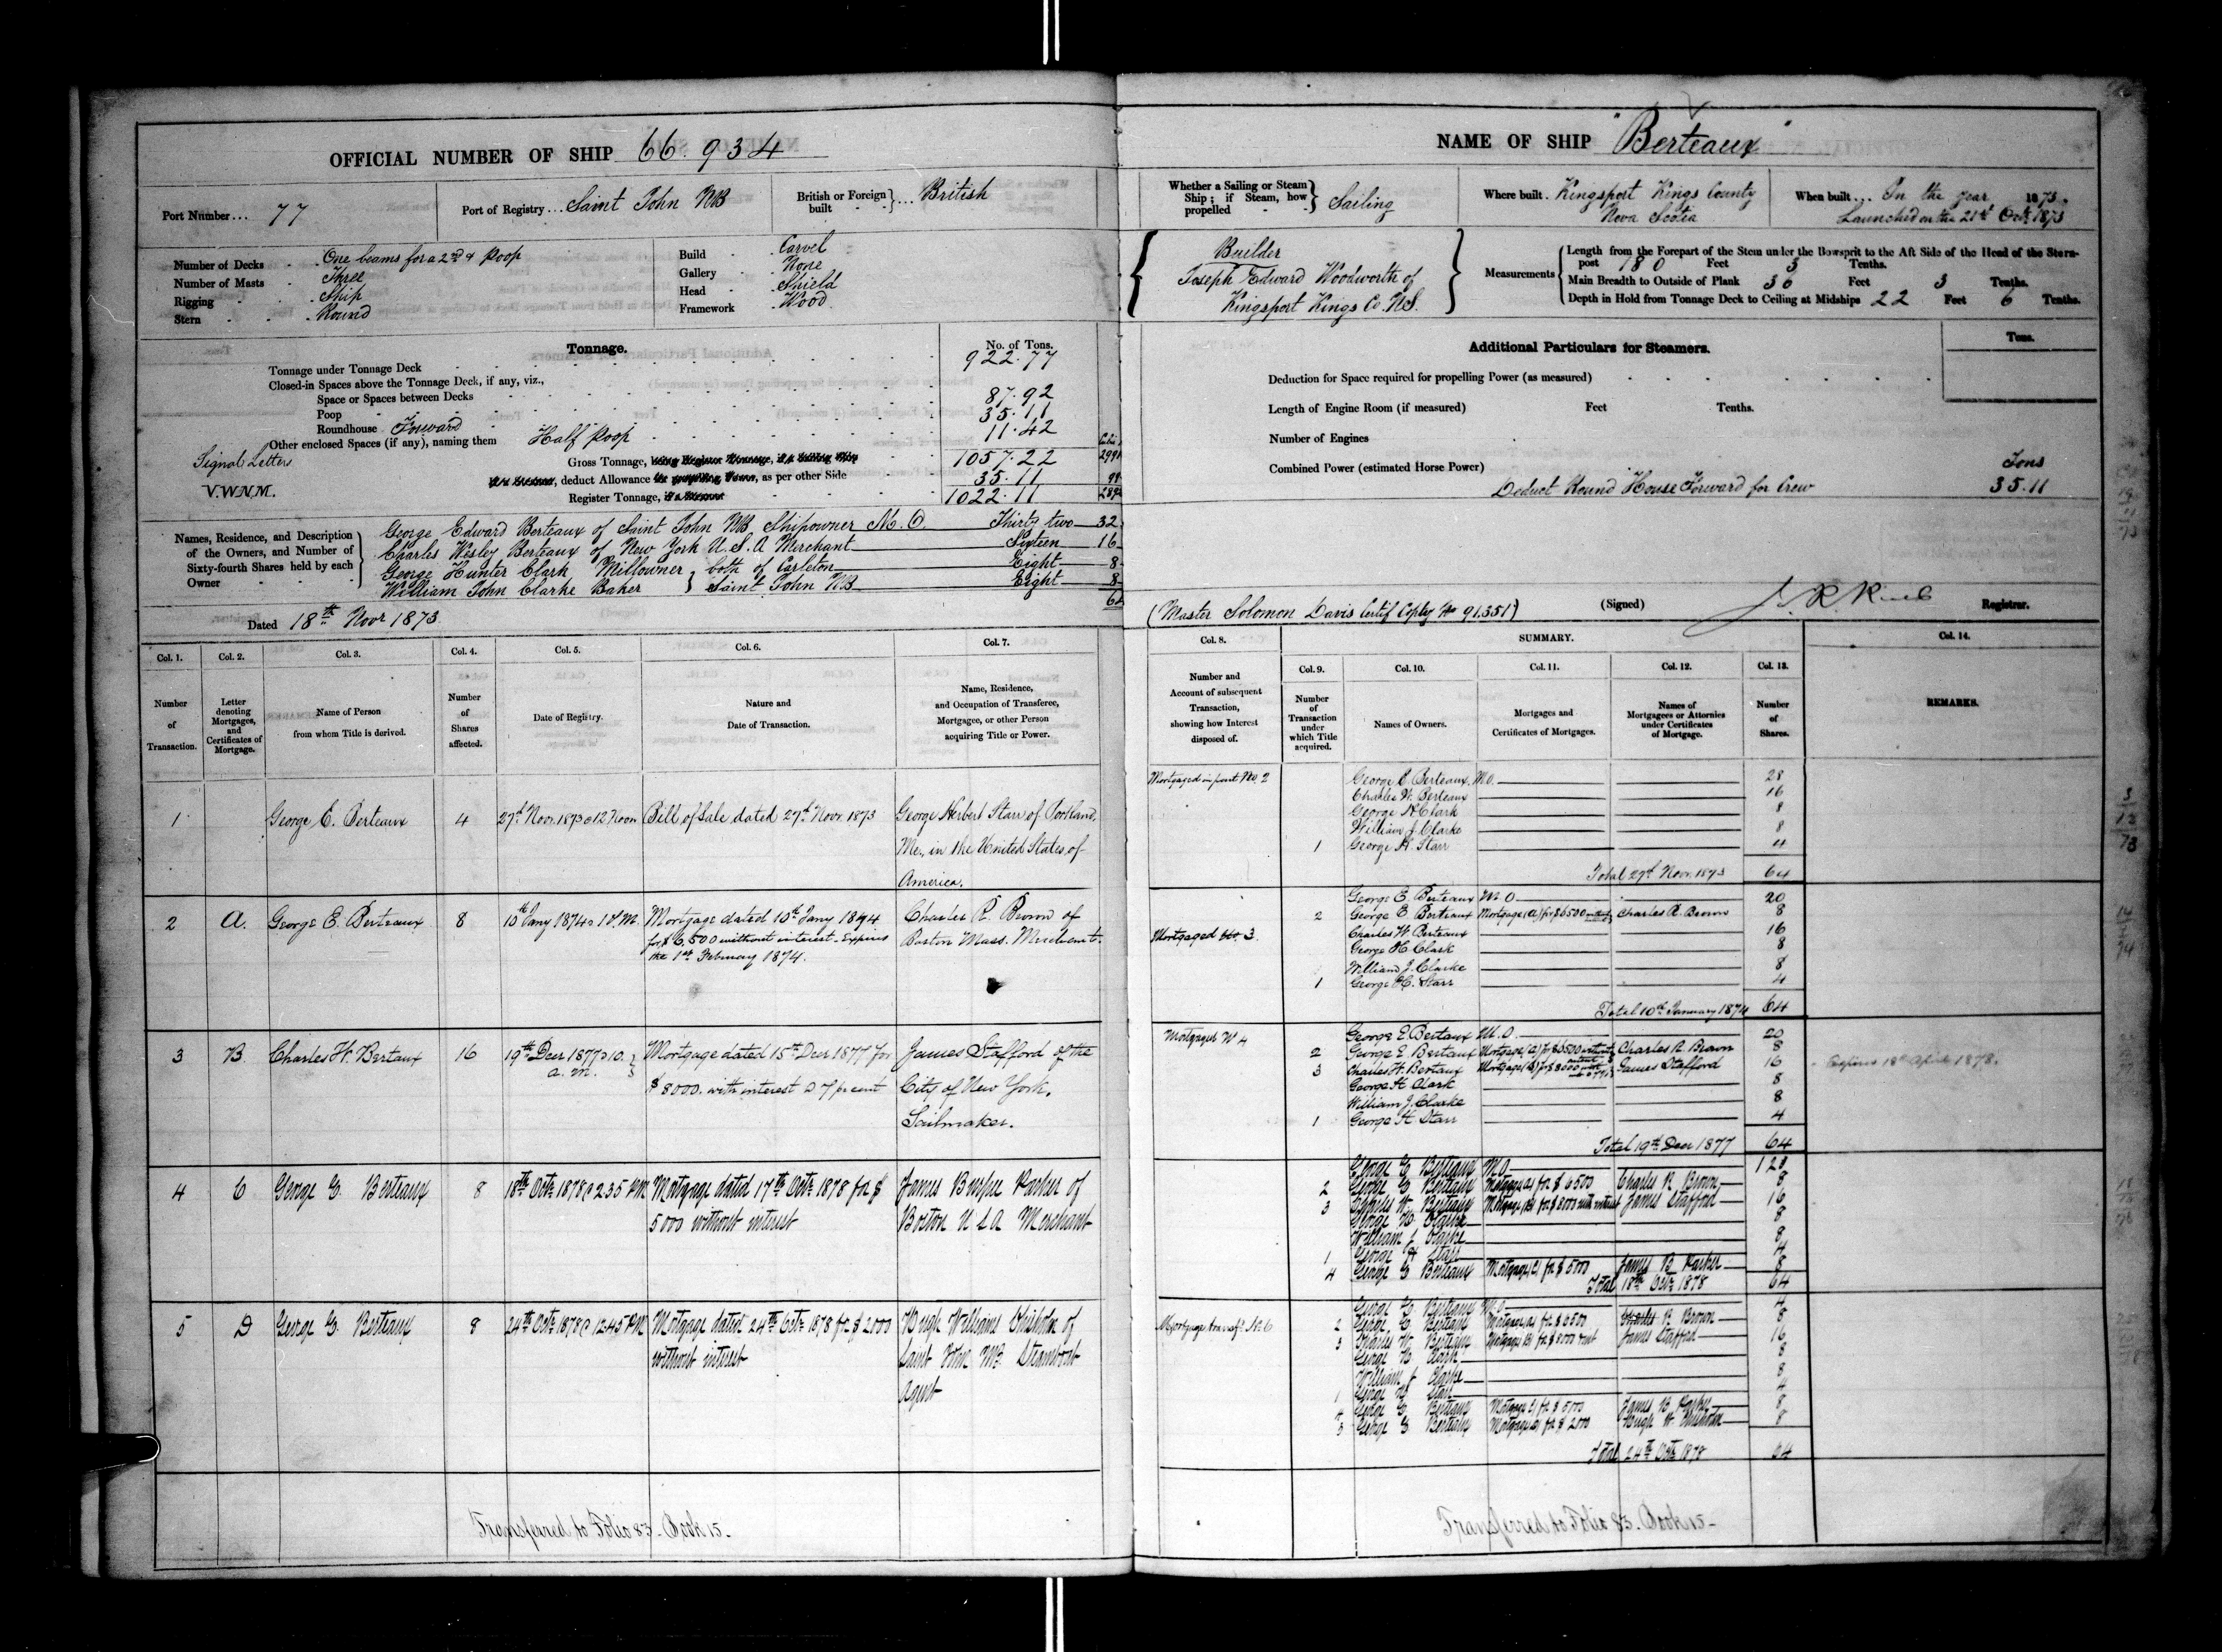 OFFICIAL NUMBER OF SHIP 66.934
Port Number... 77
Port of Registry... Saint John NB
British or Foreign built }... British
Number of Decks . One beams for a 2nd & Poop
Number of Masts . Three
Rigging . Ship
Stern . Round
Build . Carvel
Gallery . None
Head . Shield
Framework . Wood
Tonnage.
No. of Tons.
Tonnage under Tonnage Deck 922.77
Closed-in Spaces above the Tonnage Deck, if any, viz.,
Space or Spaces between Decks 87.92
Poop 35.11
Roundhouse Forward
Other enclosed Spaces (if any), naming them Half Poop 11.42
Signal Letters
V.W.N.M.
Gross Tonnage, 1057.22
deduct Allowance as per other Side 35.11
Register Tonnage, 1022.11
Names, Residence, and Description of the Owners, and Number of Sixty-fourth Shares held by each Owner
George Edward Berteaux of Saint John NB Shipowner M.O. Thirty two 32
Charles Wesley Berteaux of New York U.S.A Merchant Sixteen 16
George Hunter Clark Millowner } both of Carleton Eight 8
William John Clarke Baker } Saint John NB Eight 8
64
Dated 18th Novr 1873
Col. 1. Col. 2. Col. 3. Col. 4. Col. 5. Col. 6. Col. 7.
Number of Transaction.
Letter denoting Mortgages, and Certificates of Mortgage.
Name of Person from whom Title is derived.
Number of Shares affected.
Date of Registry.
Nature and Date of Transaction.
Name, Residence, and Occupation of Transferee, Mortgagee, or other Person acquiring Title or Power.
1 George E. Berteaux 4 27th Novr 1873 @ 12 Noon Bill of Sale dated 27th Novr 1873 George Herbert Starr of Portland,
Me., in the United States of
America.
2 A. George E. Berteaux 8 10th Jany 1874 @ 1 P.M. Mortgage dated 10th Jany 1874 Charles R. Brown of
for $6,500 without interest - Expires Boston Mass. Merchant.
the 1st February 1874.
3 B. Charles W. Bertaux 16 19th Decr 1877 @ 10. Mortgage dated 15th Decr 1877 for James Stafford of the
a.m. $8000. with interest @ 7 pr cent City of New York.
Sailmaker.
4 C George E. Berteaux 8 18th Octr 1878 @ 2.35 PM Mortgage dated 17th Octr 1878 for $ James Parker of
5000 without interest Boston U S A Merchant
5 D George E. Berteaux 8 24th Octr 1878 @ 12.45 PM Mortgage dated 24th Octr 1878 for $ 2000 Hugh Williams Chisholm of
without interest Saint John NB. Steamboat
Agent
Transferred to Folio 83 - Book 15 -
NAME OF SHIP "Berteaux"
Whether a Sailing or Steam Ship; if Steam, how propelled } Sailing
Where built. Kingsport Kings County
Nova Scotia
When built... In the year 1873.
Launched on the 21st Octr 1873
Builder
Joseph Edward Woodworth of
Kingsport Kings Co. N.S.
Measurements
Length from the Forepart of the Stem under the Bowsprit to the Aft Side of the Head of the Stern-
post 180 Feet 3 Tenths.
Main Breadth to Outside of Plank 36 Feet 3 Tenths.
Depth in Hold from Tonnage Deck to Ceiling at Midships 22 Feet 6 Tenths.
Additional Particulars for Steamers.
Tons.
Deduction for Space required for propelling Power (as measured)
Length of Engine Room (if measured) Feet Tenths.
Number of Engines
Combined Power (estimated Horse Power)
Tons
Deduct Round House Forward for Crew 35.11
(Master Solomon Davis Certif Coptcy No 91.351)
(Signed) Registrar.
Col. 8. SUMMARY. Col. 14.
Col. 9. Col. 10. Col. 11. Col. 12. Col. 13.
Number and Account of subsequent Transaction, showing how Interest disposed of.
Number of Transaction under which Title acquired.
Names of Owners.
Mortgages and Certificates of Mortgages.
Names of Mortgagees or Attornies under Certificates of Mortgage.
Number of Shares.
REMARKS.
Mortgaged in part No. 2 George E. Berteaux. M.O. 28
Charles W. Berteaux 16
George H. Clark 8
William J. Clarke 8
1 George H. Starr 4
Total 27th Novr 1873 64
George E. Berteaux M O 20
2 George E. Berteaux Mortgage (A) for $6500 Charles R. Brown 8
Mortgaged No. 3. Charles W. Berteaux 16
George H. Clark 8
William J. Clarke 8
1 George H. Starr 4
Total 10th January 1874 64
Mortgaged No 4 George E Bertaux M.O. 20
2 George E. Bertaux Mortgage (A) for $6500 without Charles R. Brown 8
3 Charles W. Bertaux Mortgage (B) for $8000 James Stafford 16 Expires 18th April 1878.
George H Clark 8
William J. Clarke 8
1 George H Starr 4
Total 19th Decr 1877 64
George E Berteaux M.O 12
2 George E Berteaux Mortgage (A) for $ 6500 Charles R Brown 8
3 Charles W. Berteaux Mortgage (B) for $ 8000 with interest James Stafford 16
George H. Clark 8
William J Clarke 8
1 George H Starr 4
4 George E Berteaux Mortgage (C) for $ 5000 James B Parker 8
Total 18th Octr 1878 64
George E. Berteaux M.O 4
Mortgage transfd. No 6 2 George E Berteaux Mortgage (A) for $ 6500 Charles R Brown 8
3 Charles W. Berteaux Mortgage (B) for $ 8000 James Stafford 16
George H Clark 8
William J Clarke 8
1 George H Starr 4
4 George E. Berteaux Mortgage (C) for $ 5000 James B Parker 8
5 George E Berteaux Mortgage (D) for $ 2000 Hugh W Chisholm 8
Total 24th Octr 1878 64
Transferred to Folio 83. Book 15 -